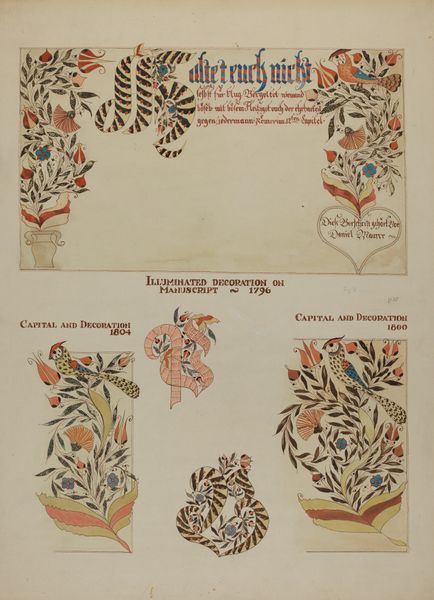 Haltet euch nicht
selbst für klug. Vergeltet niemand
böses mit bösem. Fleißiget euch der ehrbarkeit
gegen jedermann. Römer am 12ten Capitel.
Dies Vorschrift gehört vor
Daniel Maurer
ILLUMINATED DECORATION ON
MANUSCRIPT ~ 1796
CAPITAL AND DECORATION
1804
CAPITAL AND DECORATION
1800